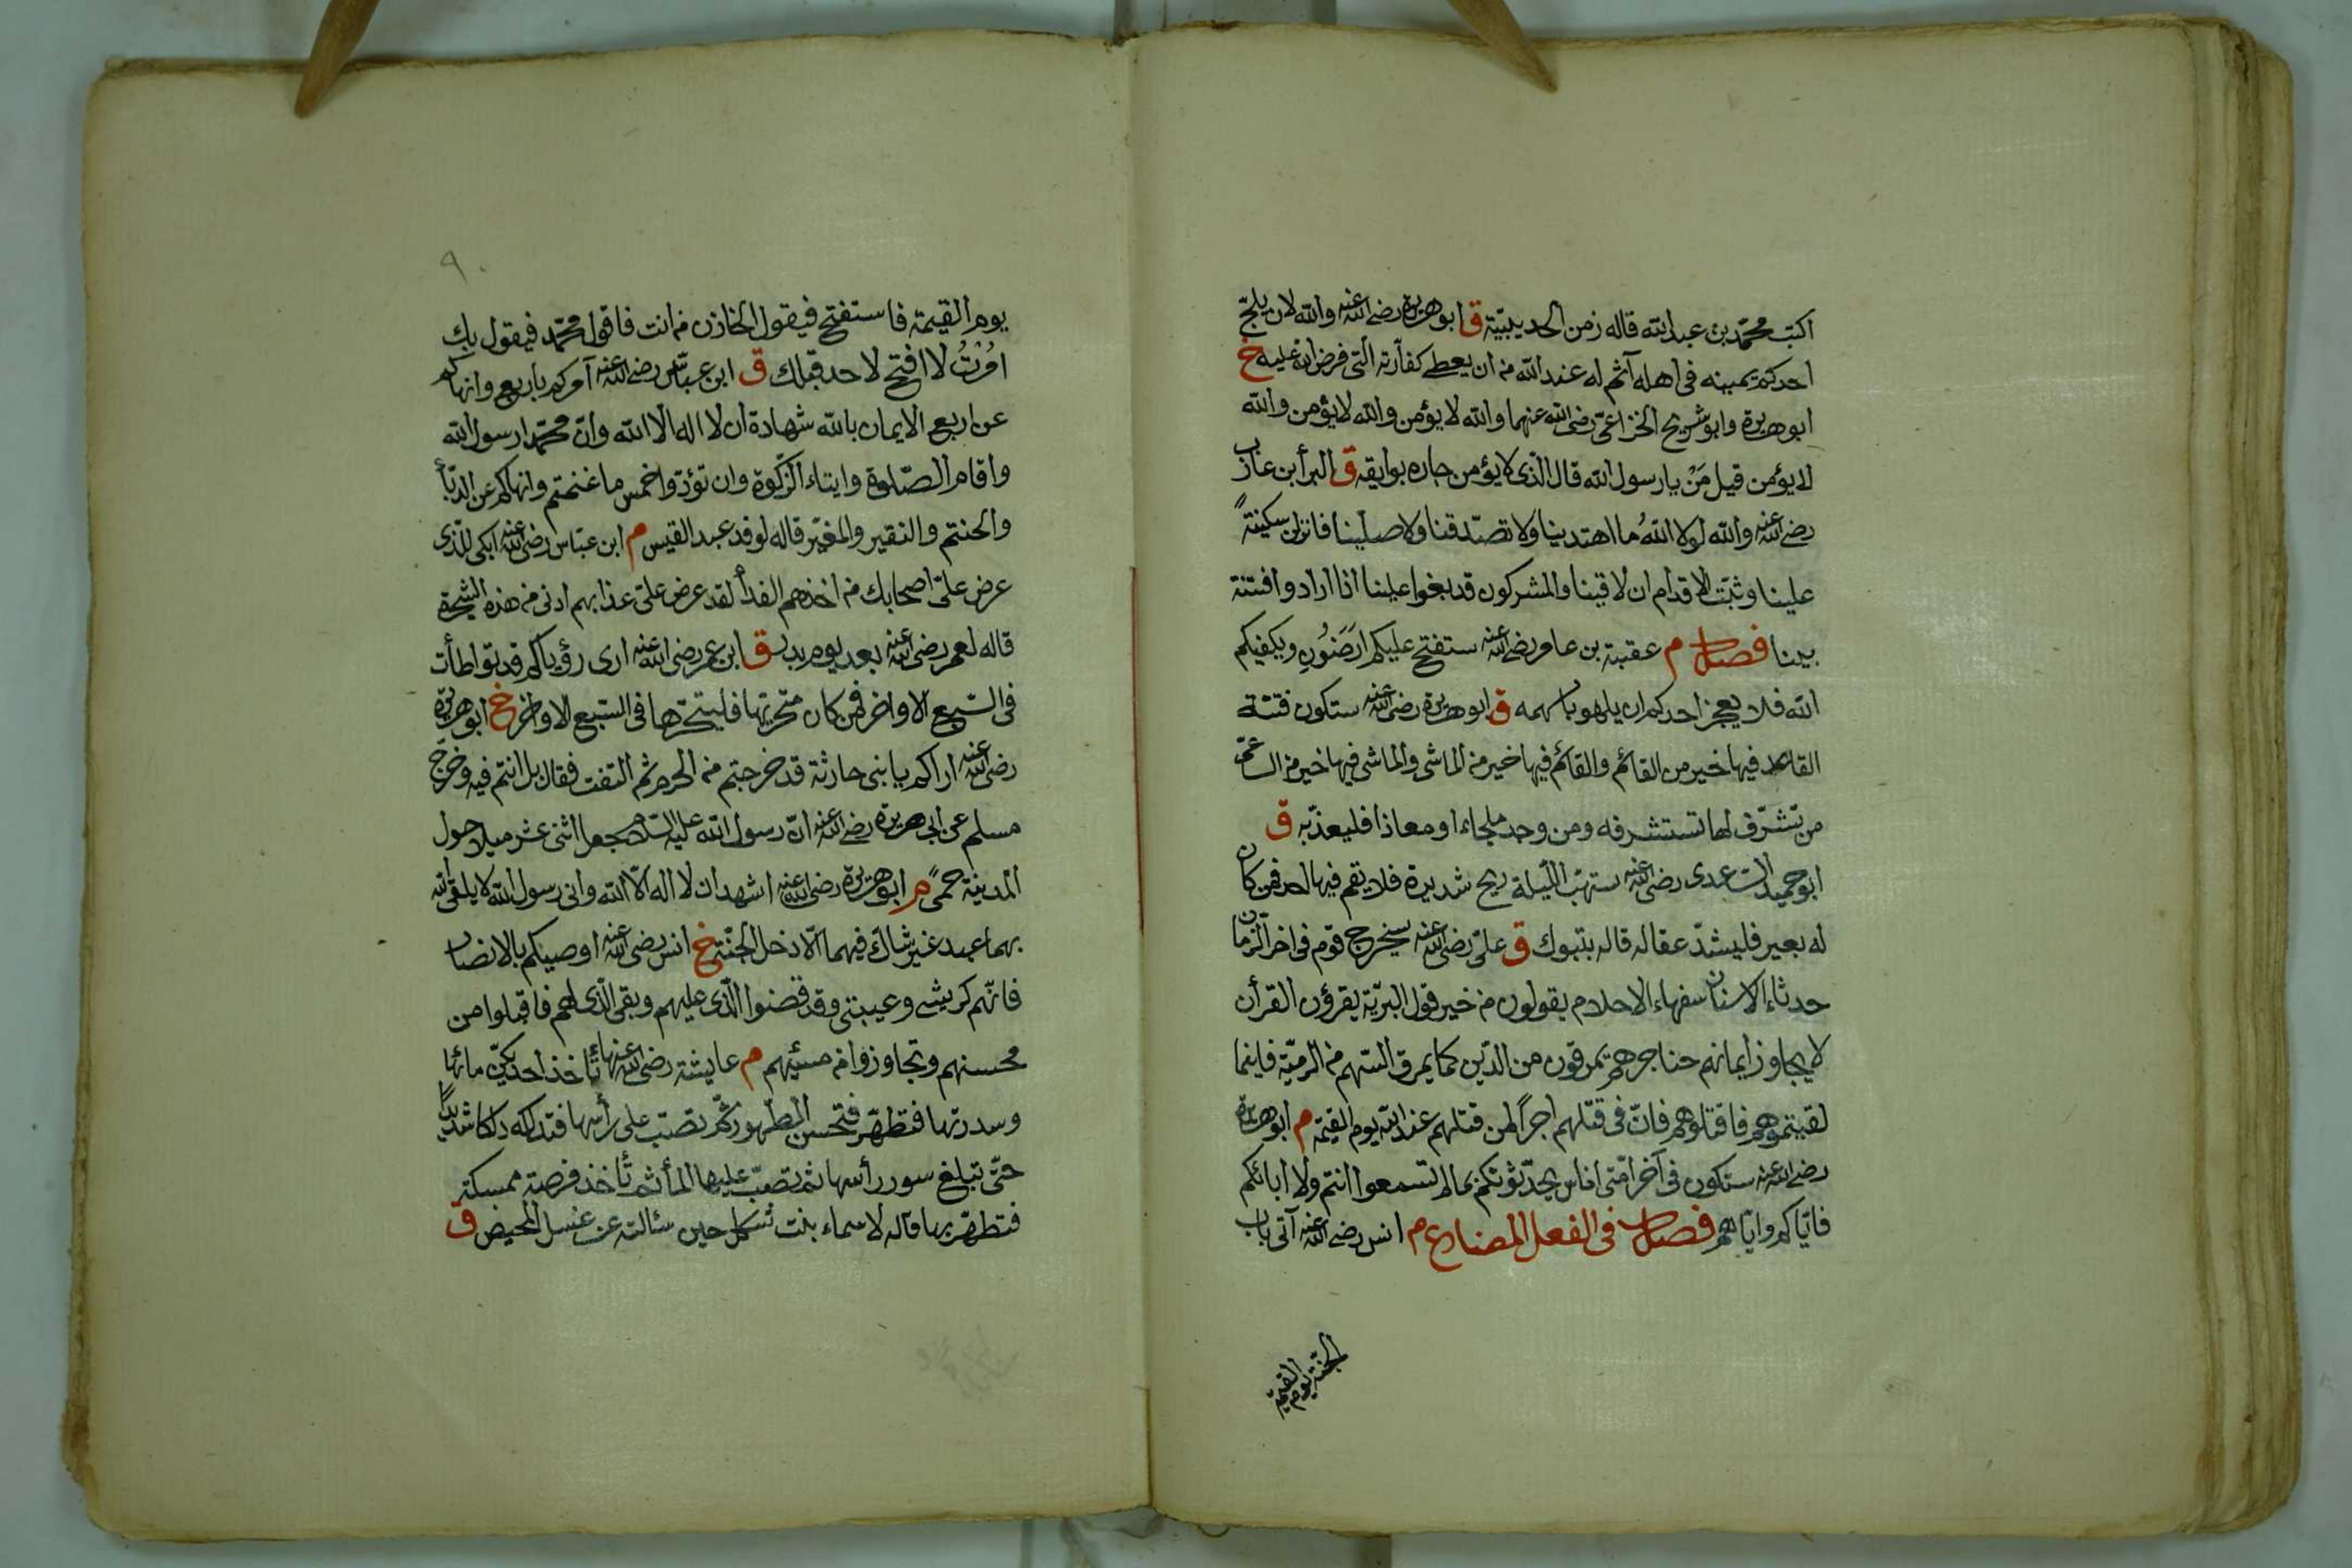 اكتب محمّد بن عبد الله قاله زمن الحديبيّة ق ابو هريرة رضى الله عنه والله لان يلجّ
احدكم بيمينه فى اهله آثم له عند الله من ان يعطى كفارته التى فرض الله عليه خ
ابو هريرة وابو شريح الخزاعىّ رضى الله عنهما والله لا يؤمن والله لا يؤمن والله
لا يؤمن قيل مَنْ يا رسول الله قال الّذى لا يؤمن جاره بوايقه ق البرأ بن عازب
رضى الله عنه والله لولا اللهُ ما اهتدينا ولا تصدّقنا ولا صلينا فانزلن سكينةً
علينا وثبّت الاقدام ان لاقينا والمشركون قد بغوا علينا اذا ارادوا فتنة
بينا فصل م عقبة بن عامر رضى الله عنه ستفتح عليكم ارَضَوُن ويكفيكم
الله فلا يعجز احدكم ان يلهو باسهمه ق ابو هريرة رضى الله عنه ستكون فتنة
القاعد فيها خير من القائم والقائم فيها خير من الماشى والماشى فيها خير من الساعى
من تشرّف لها تستشرفه ومن وجد ملجاءً او معاذا فليعذ به ق
ابو حميد الساعدى رضى الله عنه ستهبّ الليلة ريح شديدة فلا يقم فيها احد فمن كان
له بعير فليشدّ عقاله قاله بتبوك ق علىّ رضى الله عنه سيخرج قوم فى اخر الزمان
حدثاء الاسنان سفهاء الاحلام يقولون من خير قول البريّة يقرؤن القرأن
لا يجاوز ايمانهم حناجرهم يمرقون من الدّين كما يمرق السّهم من الرميّة فاينما
لقيتموهم فاقتلوهم فانّ فى قتلهم اجرًا لمن قتلهم عند الله يوم القيمة م ابو هريرة
رضى الله عنه ستكون فى آخر امّتى اناس يحدّثونكم بما لم تسمعوا انتم ولا ابائكم
فايّاكم وايّاهم فصل فى الفعل المضارع م انس رضى الله عنه آتى باب
الجنّة يوم القيمة
٩٠
يوم القيمة فاستفتح فيقول الخازن من انت فاقول محمّد فيقول بك
امُرْتُ لا افتح لاحد قبلك ق ابن عبّاس رضى الله عنه آمركم باربع وانهاكم
عن اربع الايمان بالله شهادة ان لا اله الا الله وانّ محمّدا رسول الله
واقام الصّلوة وايتاء الزّكوة وان تؤدّوا خمس ما غنمتم وانهاكم عن الدبّأ
والحنتم والنقير والمقيّر قاله لوفد عبد القيس م ابن عبّاس رضى الله عنه ابكى للّذى
عرض علىّ اصحابك من اخذهم الفدأ لقد عرض علىّ عذابهم ادنى من هذه الشجرة
قاله لعمر رضى الله عنه بعد يوم بدر ق ابن عمر رضى الله عنه ارى رؤياكم قد تواطأت
فى السّبع الاواخر فمن كان متحرّيها فليتحرّها فى السّبع الاواخر خ ابو هريرة
رضى الله عنه اراكم يا بنى حارثة قد خرجتم من الحرم ثم التفت فقال بل انتم فيه وخرج
مسلم عن ابى هريرة رضى الله عنه انّ رسول الله عليه السّلام جعل اثنى عشر ميلا حول
المدينة حمىً م ابو هريرة رضى الله عنه اشهد ان لا اله الّا الله وانى رسول الله لا يلقى الله
بهما عبد غير شاك فيهما الّا دخل الجنّة خ انس رضى الله عنه اوصيكم بالانصار
فانّهم كرشى وعيبتى وقد قضوا الّذى عليهم وبقى الّذى لهم فاقبلوا من
محسنهم وتجاوزوا من مسيئهم م عايشة رضى الله عنها تأخذ احديكنّ مائها
وسدرتها فتطهّر فتحسن الطّهور ثمّ تصبّ على رأسها فتدلكه دلكا شديدًا
حتّى تبلغ سور رأسها ثمّ تصبّ عليها المأ ثم تأخذ فرصة ممسكة
فتطهّر بها قاله لاسماء بنت شكل حين سئالته عن غسل المحيض ق